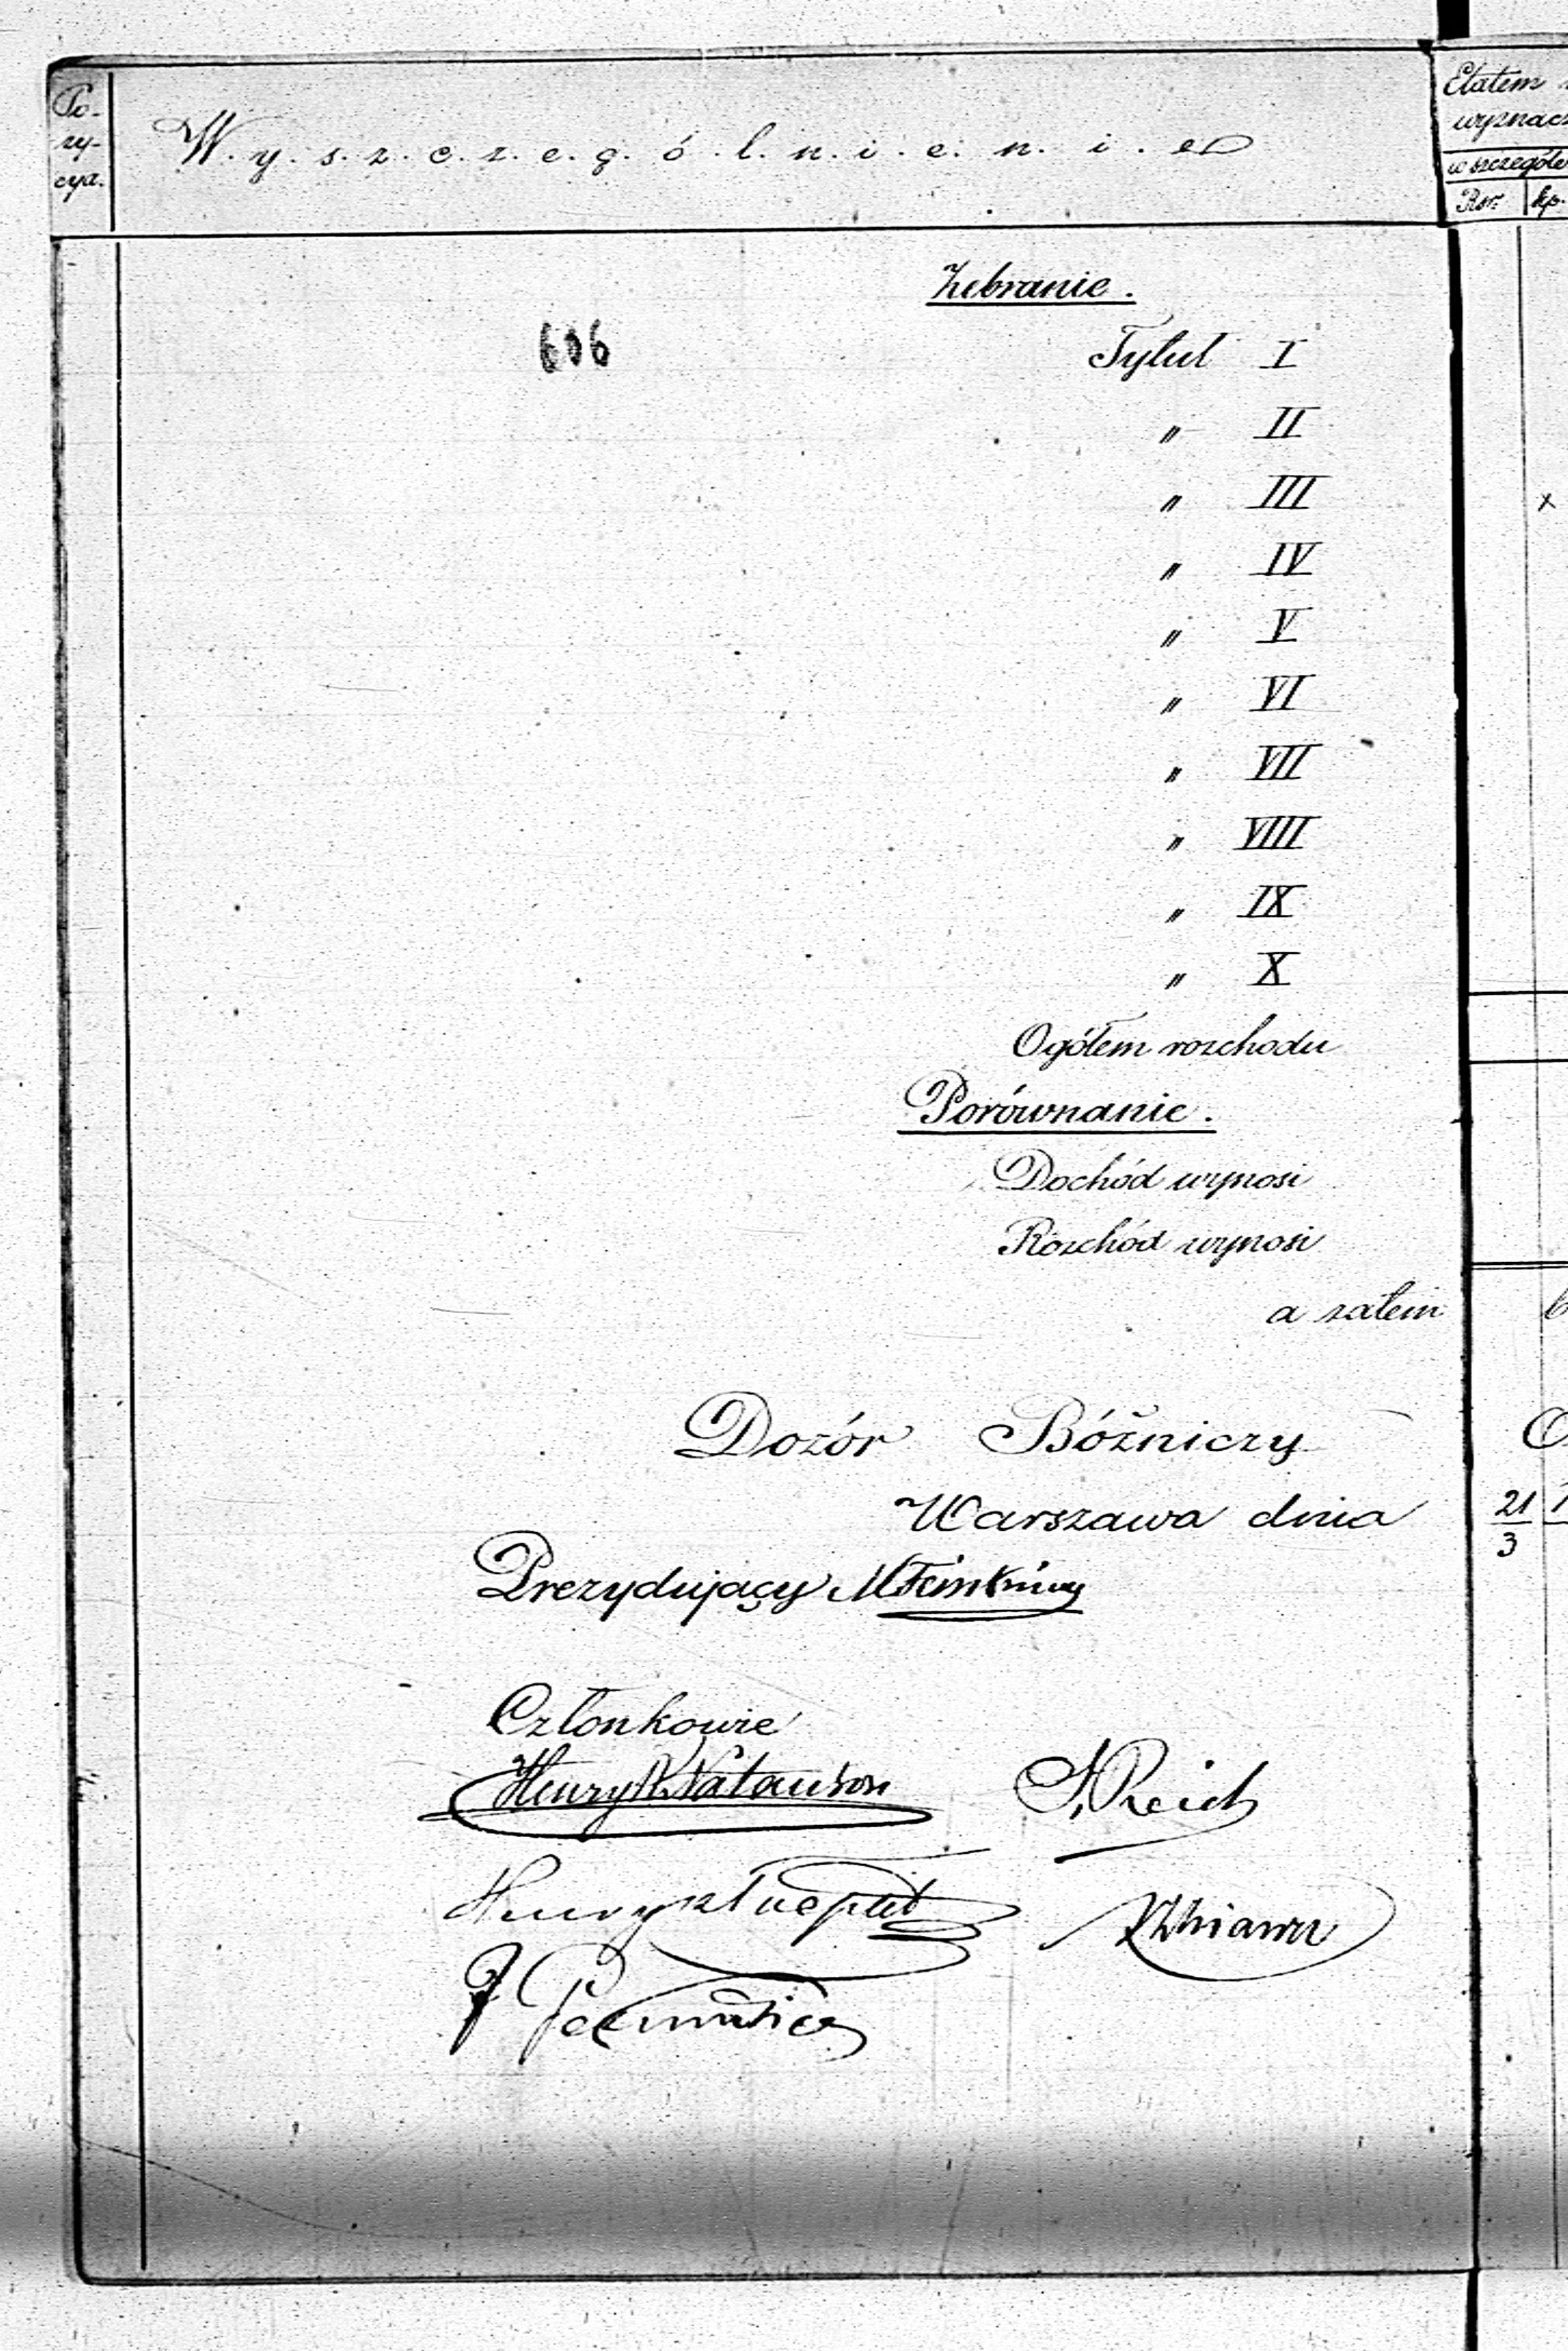 Po-
zy-
cya.
W.y.s.z.c.z.e.g.ó.l.n.i.e.n.i.e
Etatem
wyznacz
w szczególe
Rsr. kp.
Zebranie.
606
Tytuł I
" II
" III
x
" IV
" V
" VI
" VII
" VIII
" IX
" X
Ogółem rozchodu
Porównanie.
Dochód wynosi
Rozchód wynosi
a zatem
Dozór Bóźniczy
Warszawa dnia 21/3
Prezydujący
Członkowie
Henryk Natanson
S. Reich
Henryk